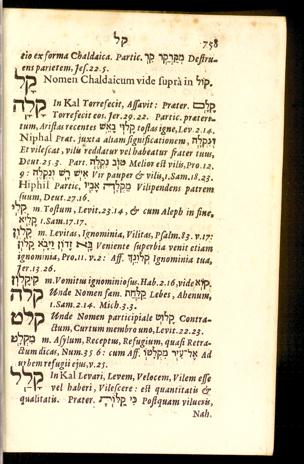 קל 758
tio ex forma Chaldaica. Partic. מְקַרְקַר קִר Destru-
ens parietem, Jes. 22. 5.
קָל Nomen Chaldaicum vide suprà in קוֹל.
קָלָה In Kal Torrefecit, Assavit: Præter. קָלָם
Torrefecit eos. Jer. 29. 22. Partic. præteri-
tum, Aristas recentes קָלוּי בָּאֵשׁ tostas igne, Lev. 2. 14.
Niphal Præt. juxta aliam significationem, וְנִקְלָה
Et vilescat, vilu reddatur vel habeatur frater tuus,
Deut. 25. 3. Part. טוֹב נִקְלֶה Melior est vilis, Pro. 12.
9: אִישׁ רָשׁ וְנִקְלֶה Vir pauper & vilis, 1. Sam. 18. 23.
Hiphil Partic. מַקְלֶה אָבִיו Vilipendens patrem
suum, Deut. 27. 16.
קָלִי m. Tostum, Levit. 23. 14, & cum Aleph in fine,
קָלִיא 1. Sam. 17. 17.
קָלוֹן m. Levitas, Ignominia, Vilitas, Psalm. 83. v. 17:
בָּא זָדוֹן וַיָּבֹא קָלוֹן Veniente superbia venit etiam
ignominia, Pro. 11. v. 2: Aff. קְלוֹנֵךְ Ignominia tua,
Jer. 13. 26.
קִיקָלוֹן m. Vomitus ignominiosus, Hab. 2. 16, vide קוֹא.
קלח Unde Nomen fœm. קַלַּחַת Lebes, Ahenum,
1. Sam. 2. 14. Mich. 3. 3.
קלט Unde Nomen participiale קָלוּט Contra-
ctum, Curtum membro uno, Levit. 22. 23.
מִקְלָט m. Asylum, Receptus, Refugium, quasi Retra-
ctum dicas, Num. 35 6: cum Aff. אֶל־עִיר מִקְלָטוֹ Ad
urbem refugii ejus, v. 25.
קָלַל In Kal Levari, Levem, Velocem, Vilem esse
vel haberi, Vilescere: est quantitatis &
qualitatis. Præter. כִּי קַלּוֹתָ Postquam vilueris,
Nah.